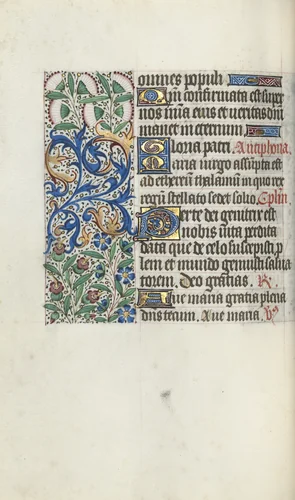 omnes populi
Qm̄ confirmata est super
nos mīa eius et veritas dn̄i
manet in eternum
Gloria patri. Antiphona.
Maria virgo assūpta est
ad ethereū thalamū in quo rex
regū stellato sedet solio. Cplm.
Per te dei genitrix est
nobis vita perdita
data que de celo suscepisti p
lem et mundo genuisti salua
torem. Deo gratias. R.
Aue maria gratia plena
dn̄s tecum. Aue maria. Vs